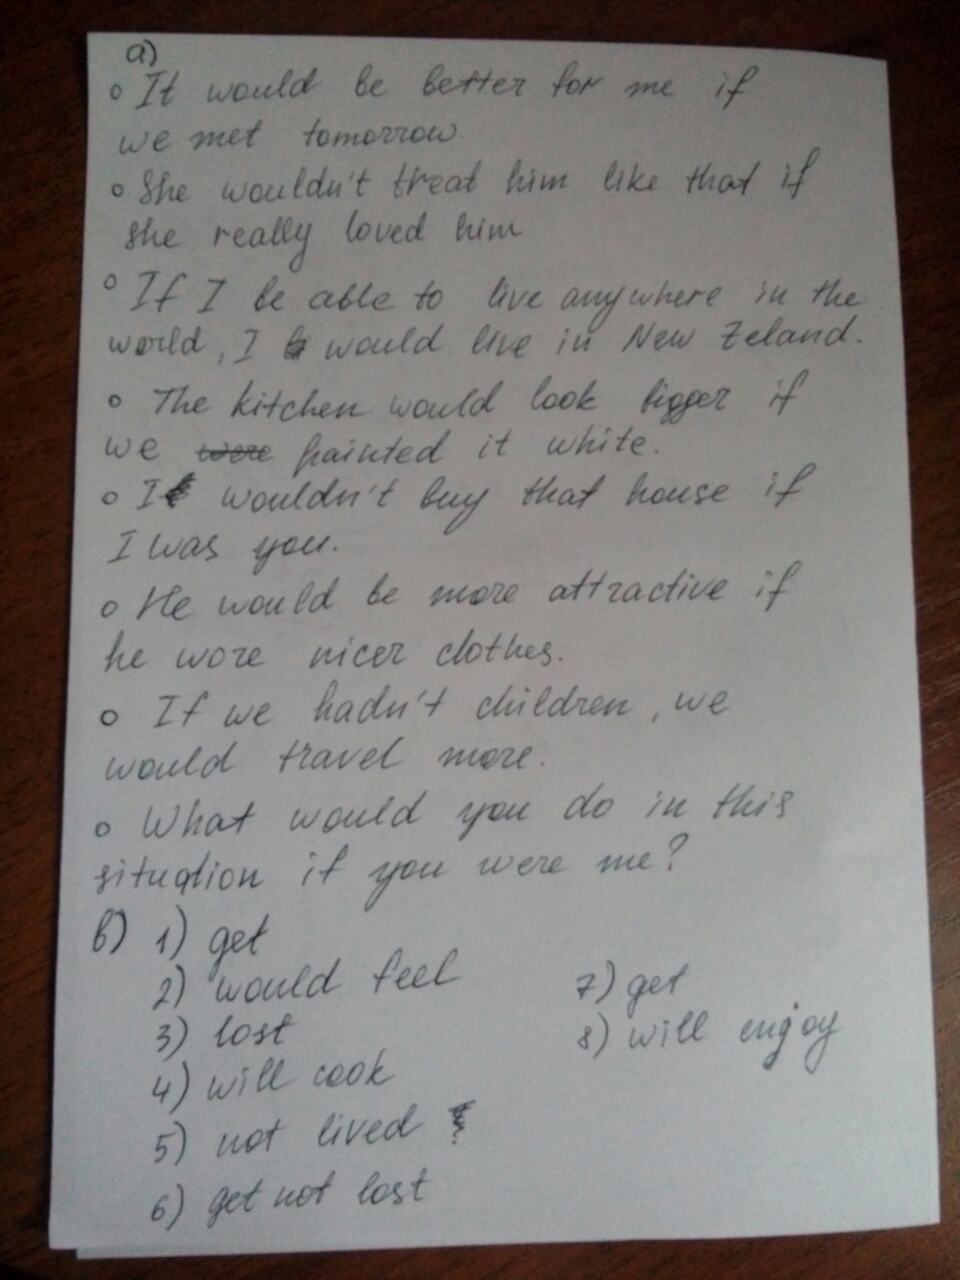 a)
o It would be better for me if
we met tomorrow.
o She wouldn't treat him like that if
she really loved him
o If I be able to live anywhere in the
world, I would live in New Zeland.
o The kitchen would look bigger if
we were painted it white.
o I wouldn't buy that house if
I was you.
o He would be more attractive if
he wore nicer clothes.
o If we hadn't children, we
would travel more.
o What would you do in this
situation if you were me?
b) 1) get
2) would feel
3) lost
4) will cook
5) not lived
6) get not lost
7) get
8) will enjoy